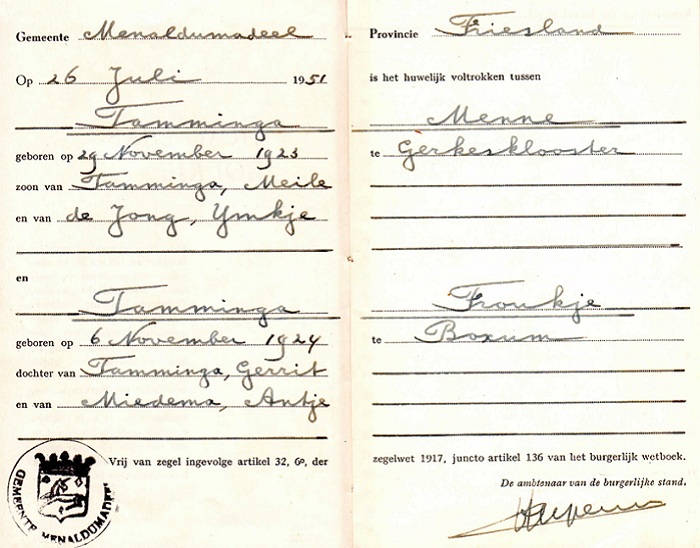 Gemeente Menaldumadeel
Op 26 Juli 1951
Tamminga
geboren op 29 November 1923
zoon van Tamminga, Meile
en van de Jong, Ymkje
en
Tamminga
geboren op 6 November 1924
dochter van Tamminga, Gerrit
en van Miedema, Antje
Vrij van zegel ingevolge artikel 32, 6º, der
GEMEENTE MENALDUMADEEL
Provincie Friesland
is het huwelijk voltrokken tussen
Menne
te Gerkesklooster
Froukje
te Boxum
zegelwet 1917, juncto artikel 136 van het burgerlijk wetboek.
De ambtenaar van de burgerlijke stand.